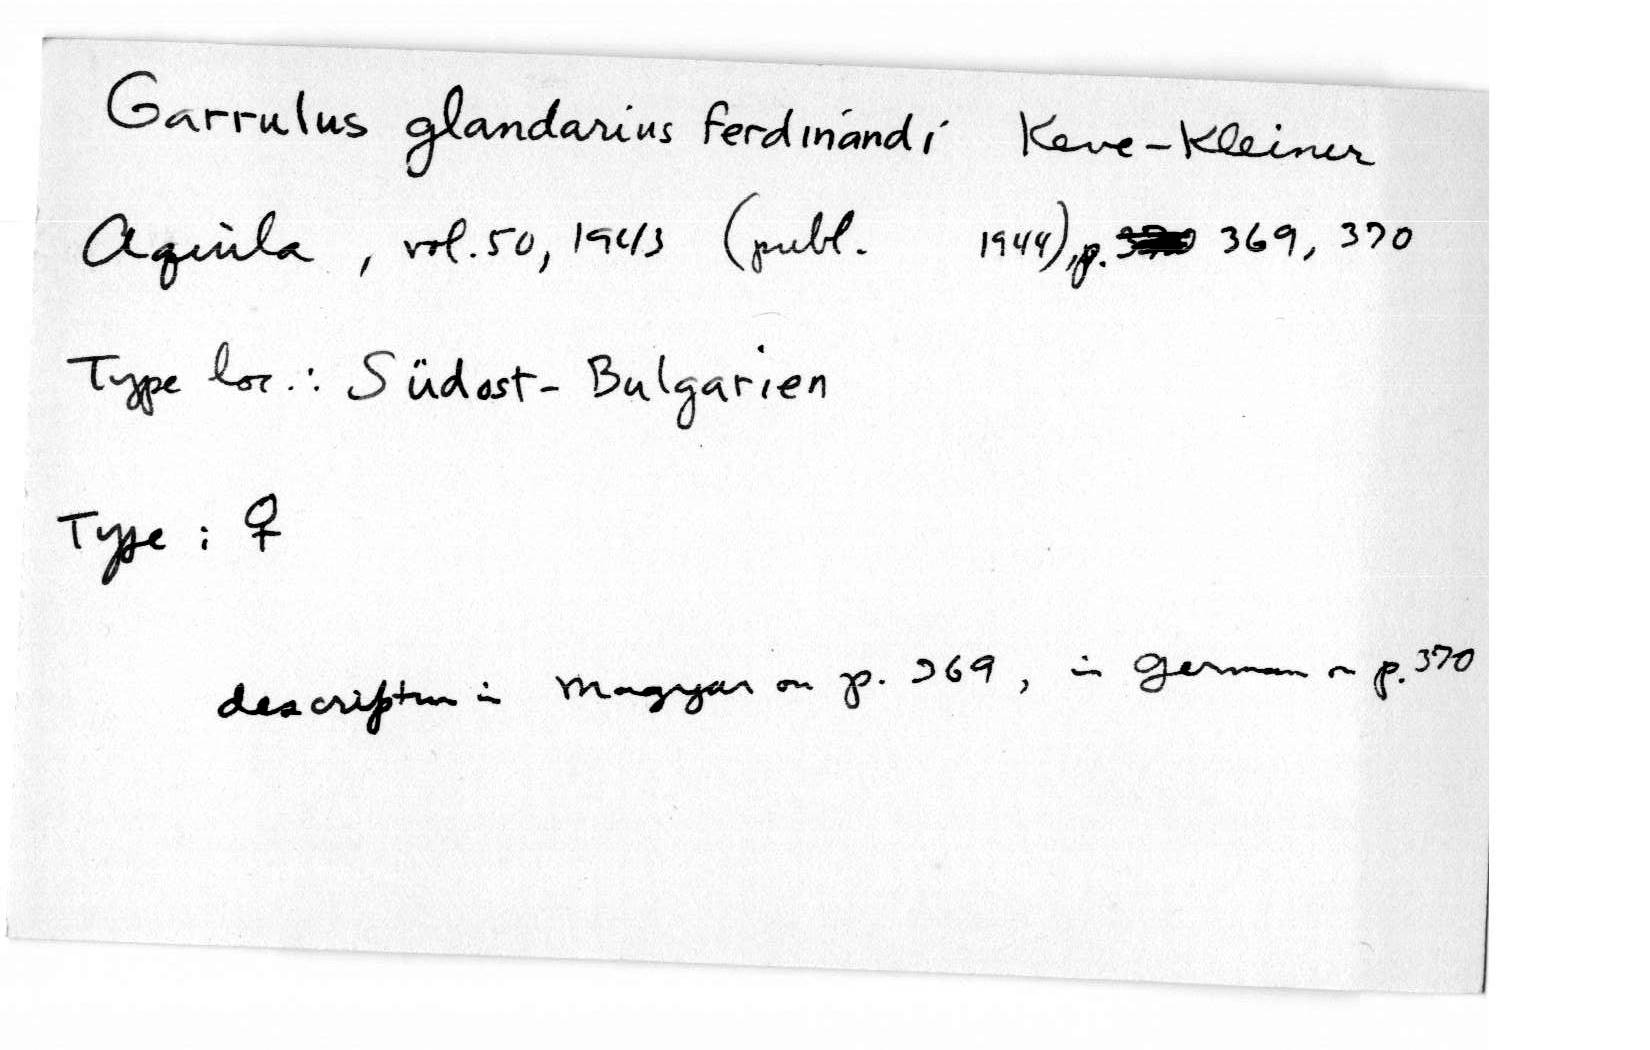 Garrulus glandarius ferdinandi Keve-Kleiner
Aquila, vol. 50, 1943 (publ. 1944), p. 369, 370
Type loc.: Südost-Bulgarien
Type: ♀
description in Magyar on p. 369, in German on p. 370